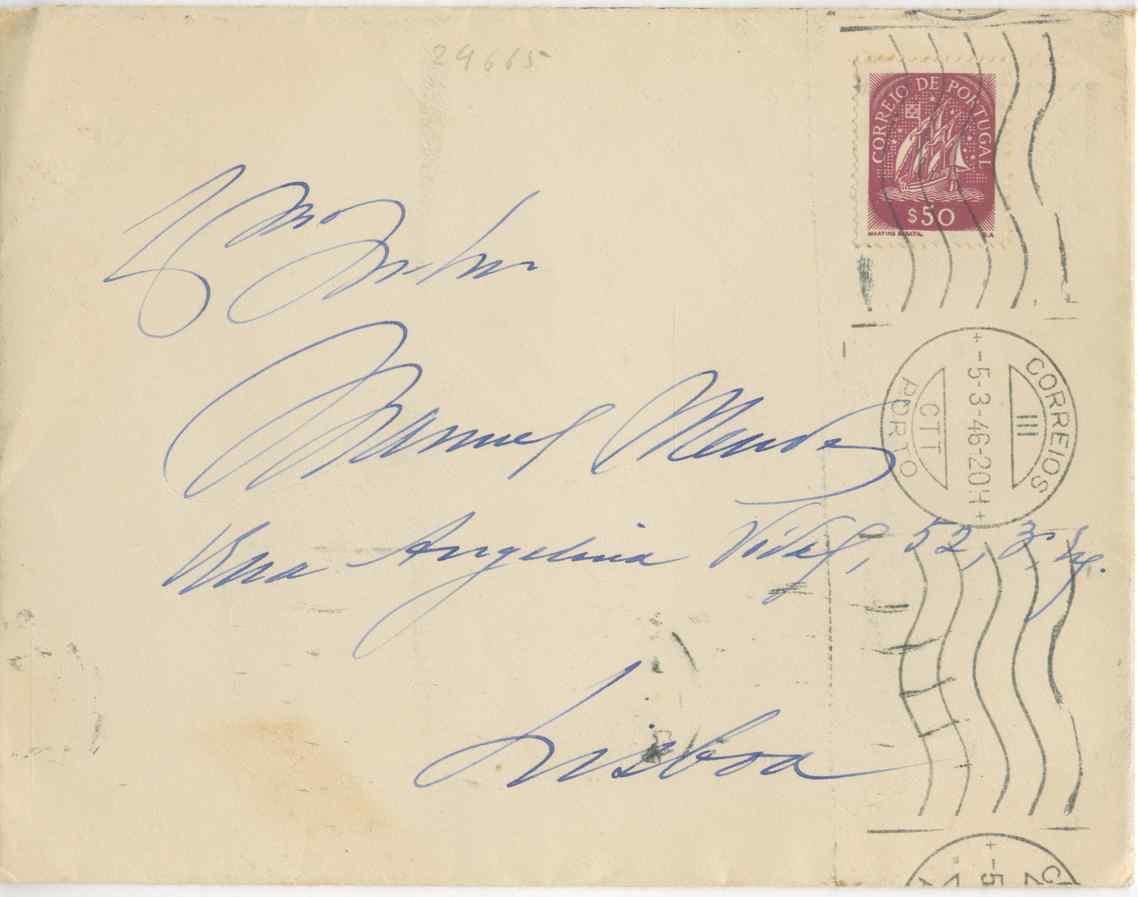 29665
CORREIO DE PORTUGAL
$50
MARTINS BARATA
Exmo Senhor
Manuel Mendes
Rua Angelina Vidal, 52, 3º
Lisboa
CORREIOS
III
-5-3-46-20H
CTT
PORTO
-5